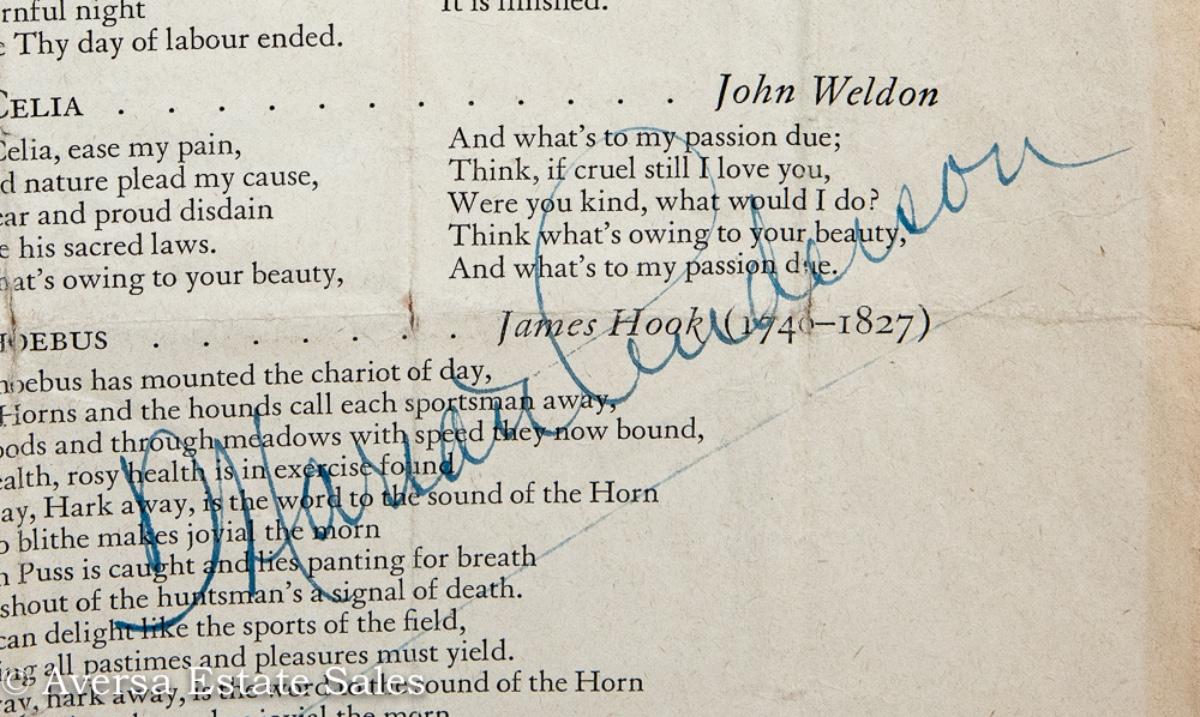 rnful night
Thy day of labour ended.
It is finished.
CELIA . . . . . . . . . . . . . John Weldon
Celia, ease my pain,
d nature plead my cause,
ear and proud disdain
e his sacred laws.
at's owing to your beauty,
And what's to my passion due;
Think, if cruel still I love you,
Were you kind, what would I do?
Think what's owing to your beauty,
And what's to my passion due.
HOEBUS . . . . . . . James Hook (1746–1827)
hoebus has mounted the chariot of day,
Horns and the hounds call each sportsman away,
oods and through meadows with speed they now bound,
ealth, rosy health is in exercise found
ay, Hark away, is the word to the sound of the Horn
o blithe makes jovial the morn
n Puss is caught and lies panting for breath
shout of the huntsman's a signal of death.
can delight like the sports of the field,
ing all pastimes and pleasures must yield.
ay, hark away, is the word to the sound of the Horn
jovial the morn
Marian Anderson
© Aversa Estate Sales